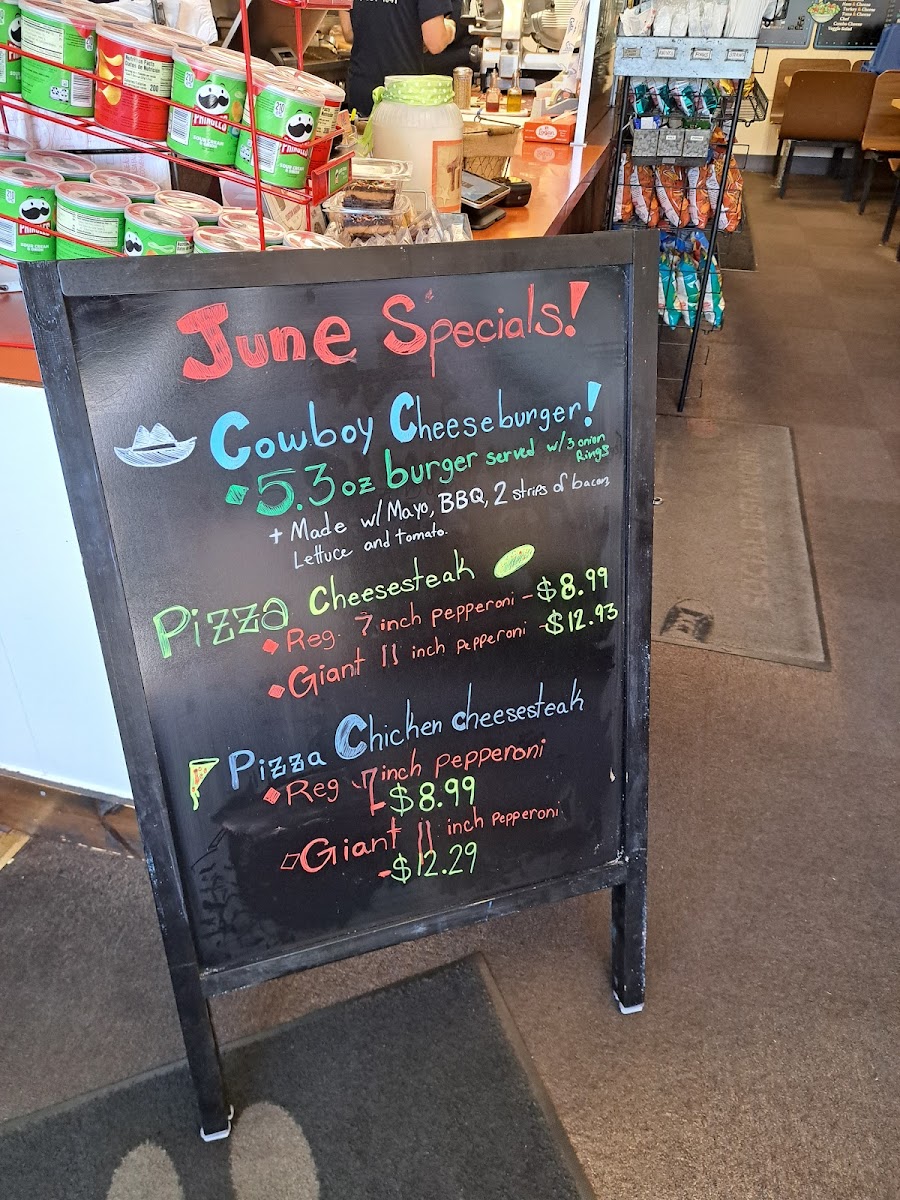 PRINGLES
June Specials!
Cowboy Cheeseburger!
5.3 oz burger served w/ 3 onion
Rings
+ Made w/ Mayo, BBQ, 2 strips of bacon,
Lettuce and tomato.
Pizza Cheesesteak
Reg. 7 inch Pepperoni - $8.99
Giant 11 inch Pepperoni - $12.93
Pizza Chicken cheesesteak
Reg 7 inch Pepperoni
- $8.99
Giant 11 inch Pepperoni
- $12.29